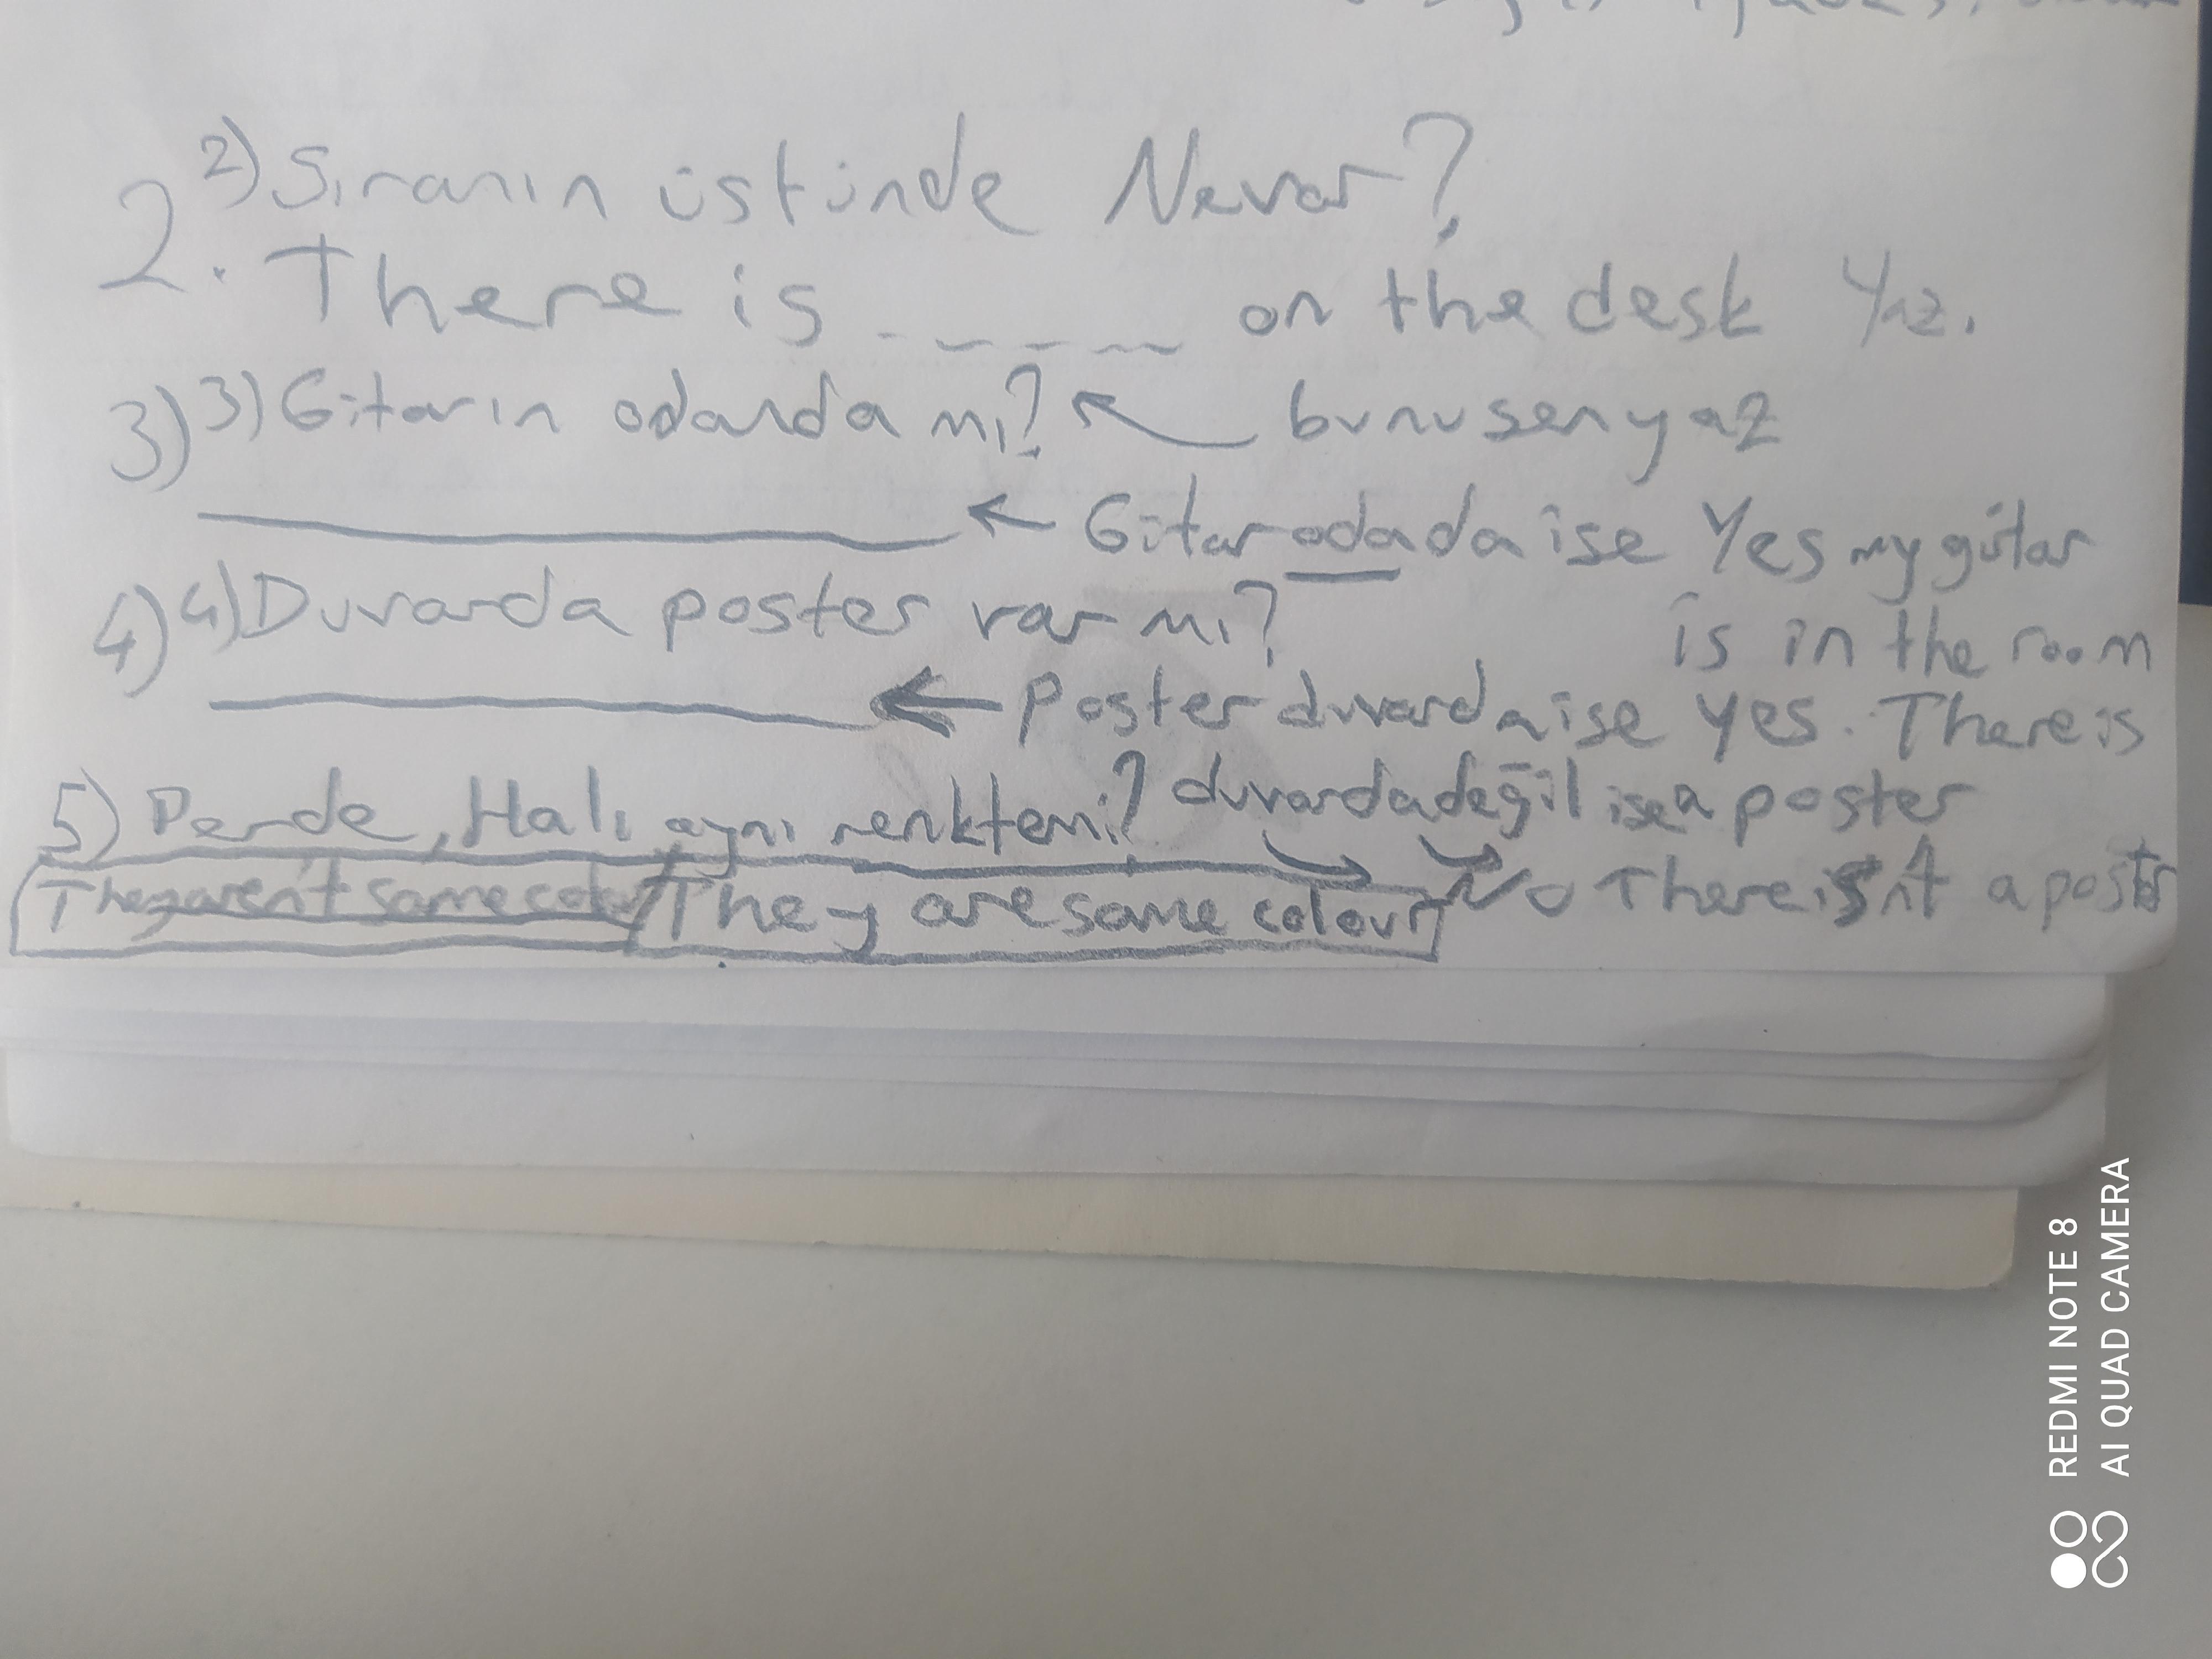 2) Sıranın üstünde Nevar?
2. There is _ _ _ _ _ on the desk Yaz.
3) 3) Gitarın odanda mı? ← bunu sen yaz
← Gitar odada ise Yes my gitar
4) 4) Duvarda poster var mı? is in the room
← Poster duvarda ise Yes. There is
5) Perde, Halı aynı renktemi? duvardadeğil ise a poster
They aren't same colour They are same colour → No There isn't a poster
REDMI NOTE 8
AI QUAD CAMERA